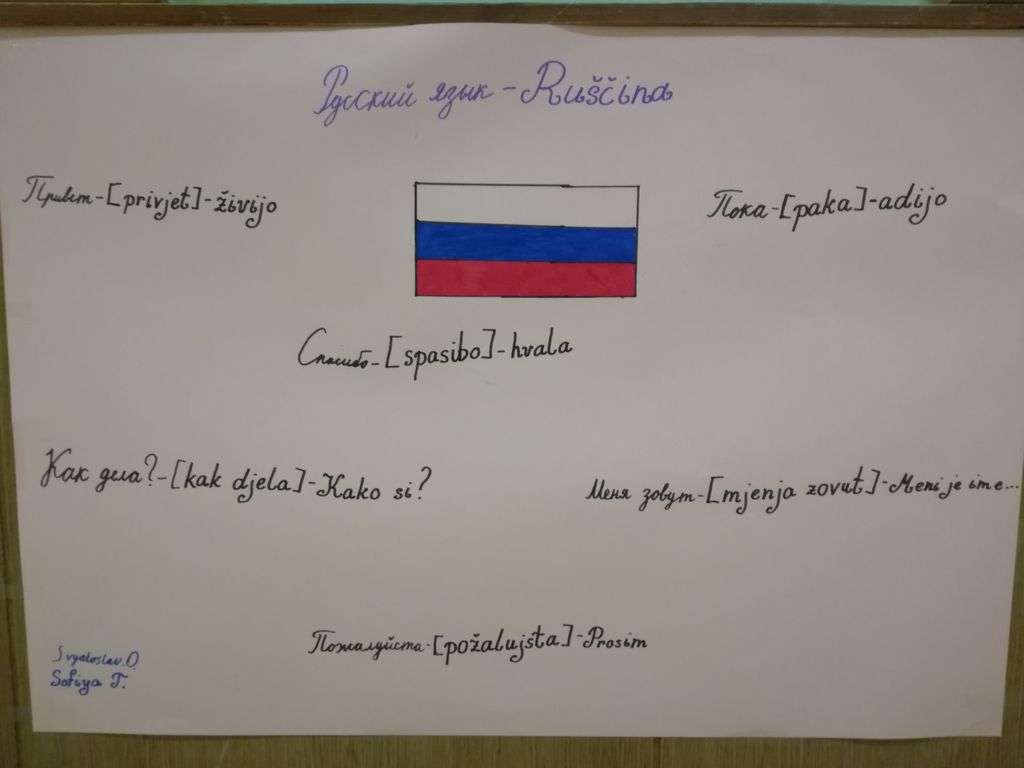 Русский язык - Ruščina
Привет - [privjet] - živijo
Пока - [paka] - adijo
Спасибо - [spasibo] - hvala
Как дела? - [kak djela] - Kako si?
Меня зовут - [mjenja zovut] - Meni je ime...
Пожалуйста - [požalujsta] - Prosim
Svyatoslav O.
Sofiya T.